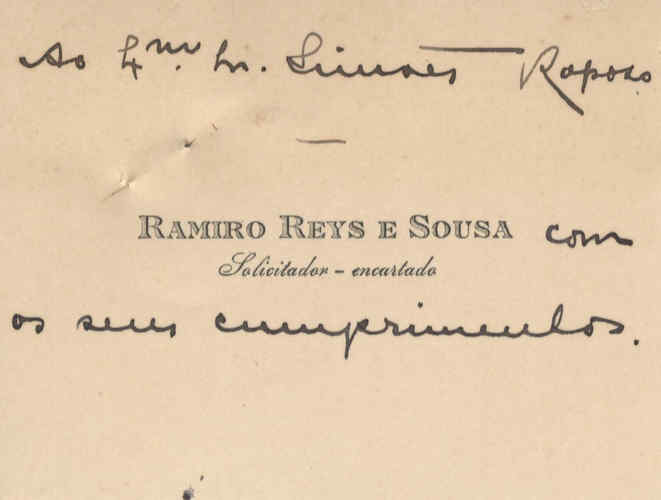 Ao Exmo. Sr. Simões Raposo
RAMIRO REYS E SOUSA com
Solicitador - encartado
os seus cumprimentos.